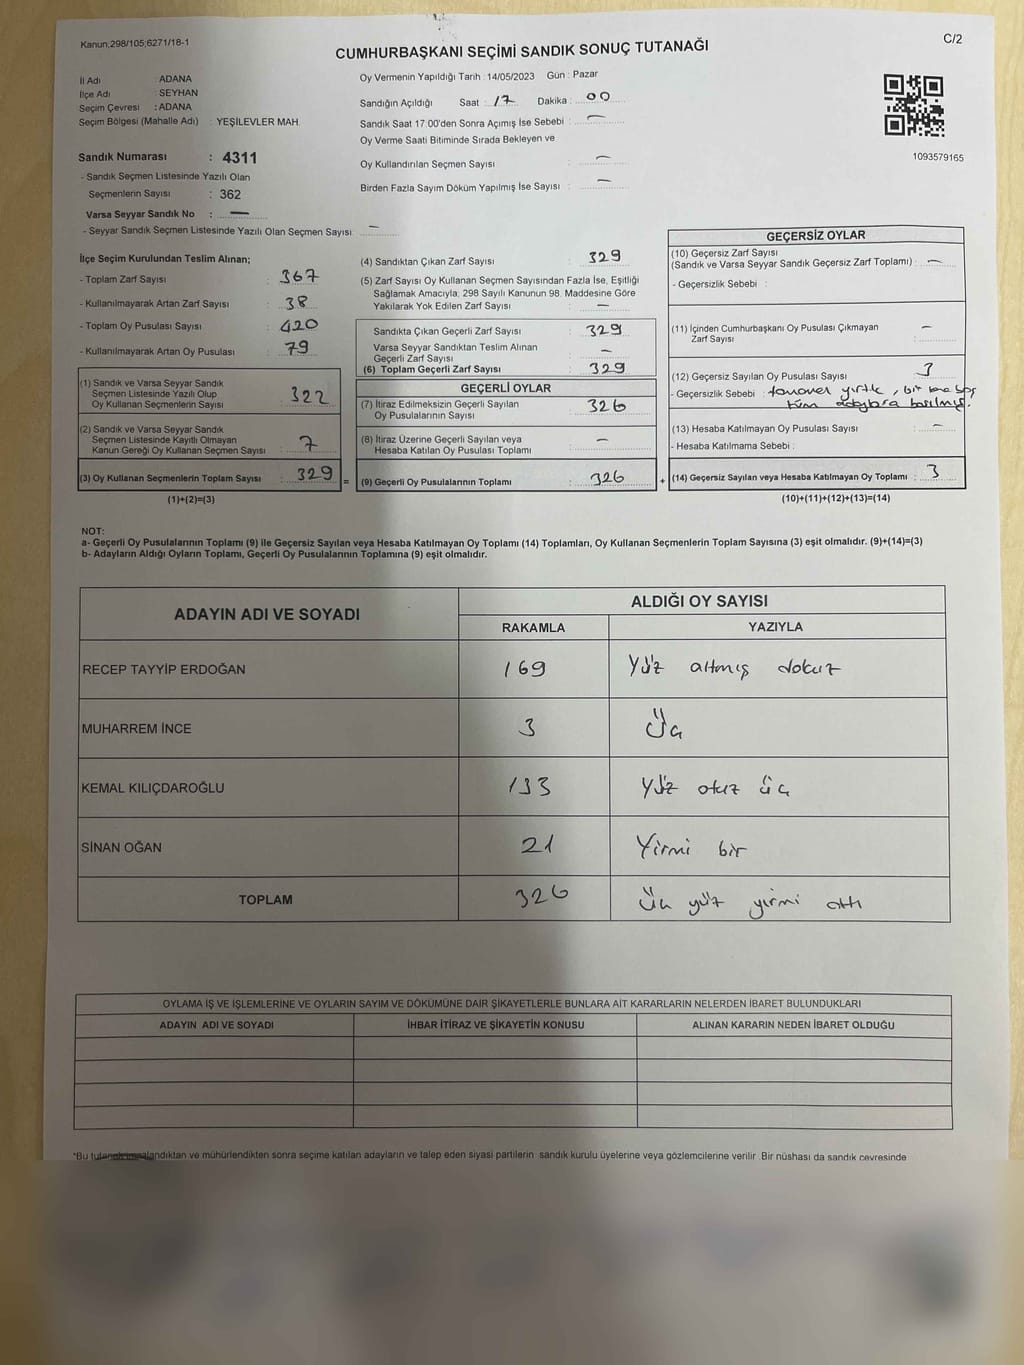 Kanun;298/105;6271/18-1
C/2
CUMHURBAŞKANI SEÇİMİ SANDIK SONUÇ TUTANAĞI
İl Adı : ADANA
İlçe Adı : SEYHAN
Seçim Çevresi : ADANA
Seçim Bölgesi (Mahalle Adı) : YEŞİLEVLER MAH.
Sandık Numarası : 4311
- Sandık Seçmen Listesinde Yazılı Olan
Seçmenlerin Sayısı : 362
Varsa Seyyar Sandık No : —
- Seyyar Sandık Seçmen Listesinde Yazılı Olan Seçmen Sayısı: —
Oy Vermenin Yapıldığı Tarih : 14/05/2023 Gün : Pazar
Sandığın Açıldığı Saat : 17 Dakika : 00
Sandık Saat 17.00'den Sonra Açımış İse Sebebi : —
Oy Verme Saati Bitiminde Sırada Bekleyen ve
Oy Kullandırılan Seçmen Sayısı : —
Birden Fazla Sayım Döküm Yapılmış İse Sayısı : —
1093579165
İlçe Seçim Kurulundan Teslim Alınan;
- Toplam Zarf Sayısı : 367
- Kullanılmayarak Artan Zarf Sayısı : 38
- Toplam Oy Pusulası Sayısı : 420
- Kullanılmayarak Artan Oy Pusulası : 79
(1) Sandık ve Varsa Seyyar Sandık
Seçmen Listesinde Yazılı Olup
Oy Kullanan Seçmenlerin Sayısı : 322
(2) Sandık ve Varsa Seyyar Sandık
Seçmen Listesinde Kayıtlı Olmayan
Kanun Gereği Oy Kullanan Seçmen Sayısı : 7
(3) Oy Kullanan Seçmenlerin Toplam Sayısı : 329 =
(1)+(2)=(3)
(4) Sandıktan Çıkan Zarf Sayısı : 329
(5) Zarf Sayısı Oy Kullanan Seçmen Sayısından Fazla İse, Eşitliği
Sağlamak Amacıyla; 298 Sayılı Kanunun 98. Maddesine Göre
Yakılarak Yok Edilen Zarf Sayısı : —
Sandıkta Çıkan Geçerli Zarf Sayısı : 329
Varsa Seyyar Sandıktan Teslim Alınan
Geçerli Zarf Sayısı : —
(6) Toplam Geçerli Zarf Sayısı : 329
GEÇERLİ OYLAR
(7) İtiraz Edilmeksizin Geçerli Sayılan
Oy Pusulalarının Sayısı : 326
(8) İtiraz Üzerine Geçerli Sayılan veya
Hesaba Katılan Oy Pusulası Toplamı : —
(9) Geçerli Oy Pusulalarının Toplamı : 326 +
GEÇERSİZ OYLAR
(10) Geçersiz Zarf Sayısı
(Sandık ve Varsa Seyyar Sandık Geçersiz Zarf Toplamı) : —
- Geçersizlik Sebebi :
(11) İçinden Cumhurbaşkanı Oy Pusulası Çıkmayan
Zarf Sayısı : —
(12) Geçersiz Sayılan Oy Pusulası Sayısı : 3
- Geçersizlik Sebebi : yırtık, bir boş
tüm adaylara basılmış.
(13) Hesaba Katılmayan Oy Pusulası Sayısı : —
- Hesaba Katılmama Sebebi :
(14) Geçersiz Sayılan veya Hesaba Katılmayan Oy Toplamı : 3
(10)+(11)+(12)+(13)=(14)
NOT:
a- Geçerli Oy Pusulalarının Toplamı (9) ile Geçersiz Sayılan veya Hesaba Katılmayan Oy Toplamı (14) Toplamları, Oy Kullanan Seçmenlerin Toplam Sayısına (3) eşit olmalıdır. (9)+(14)=(3)
b- Adayların Aldığı Oyların Toplamı, Geçerli Oy Pusulalarının Toplamına (9) eşit olmalıdır.
ADAYIN ADI VE SOYADI ALDIĞI OY SAYISI
RAKAMLA YAZIYLA
RECEP TAYYİP ERDOĞAN 169 Yüz altmış dokuz
MUHARREM İNCE 3 Üç
KEMAL KILIÇDAROĞLU 133 Yüz otuz üç
SİNAN OĞAN 21 Yirmi bir
TOPLAM 326 Üç yüz yirmi altı
OYLAMA İŞ VE İŞLEMLERİNE VE OYLARIN SAYIM VE DÖKÜMÜNE DAİR ŞİKAYETLERLE BUNLARA AİT KARARLARIN NELERDEN İBARET BULUNDUKLARI
ADAYIN ADI VE SOYADI İHBAR İTİRAZ VE ŞİKAYETİN KONUSU ALINAN KARARIN NEDEN İBARET OLDUĞU
*Bu tutanak imzalandıktan ve mühürlendikten sonra seçime katılan adayların ve talep eden siyasi partilerin sandık kurulu üyelerine veya gözlemcilerine verilir .Bir nüshası da sandık çevresinde